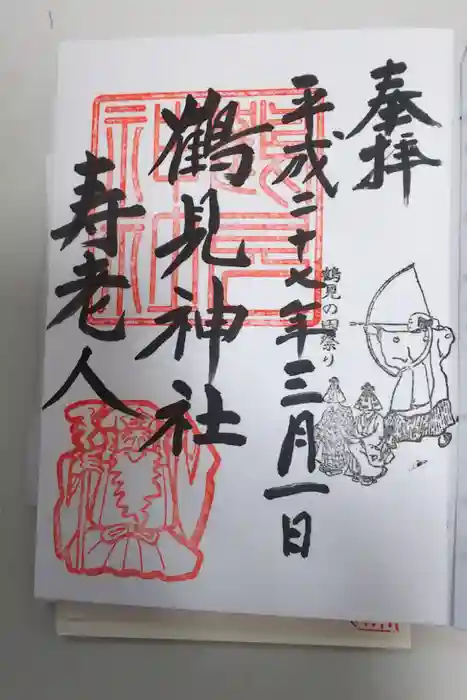 奉拝
平成二十七年三月一日
鶴見の田祭り
鶴見神社
寿老人